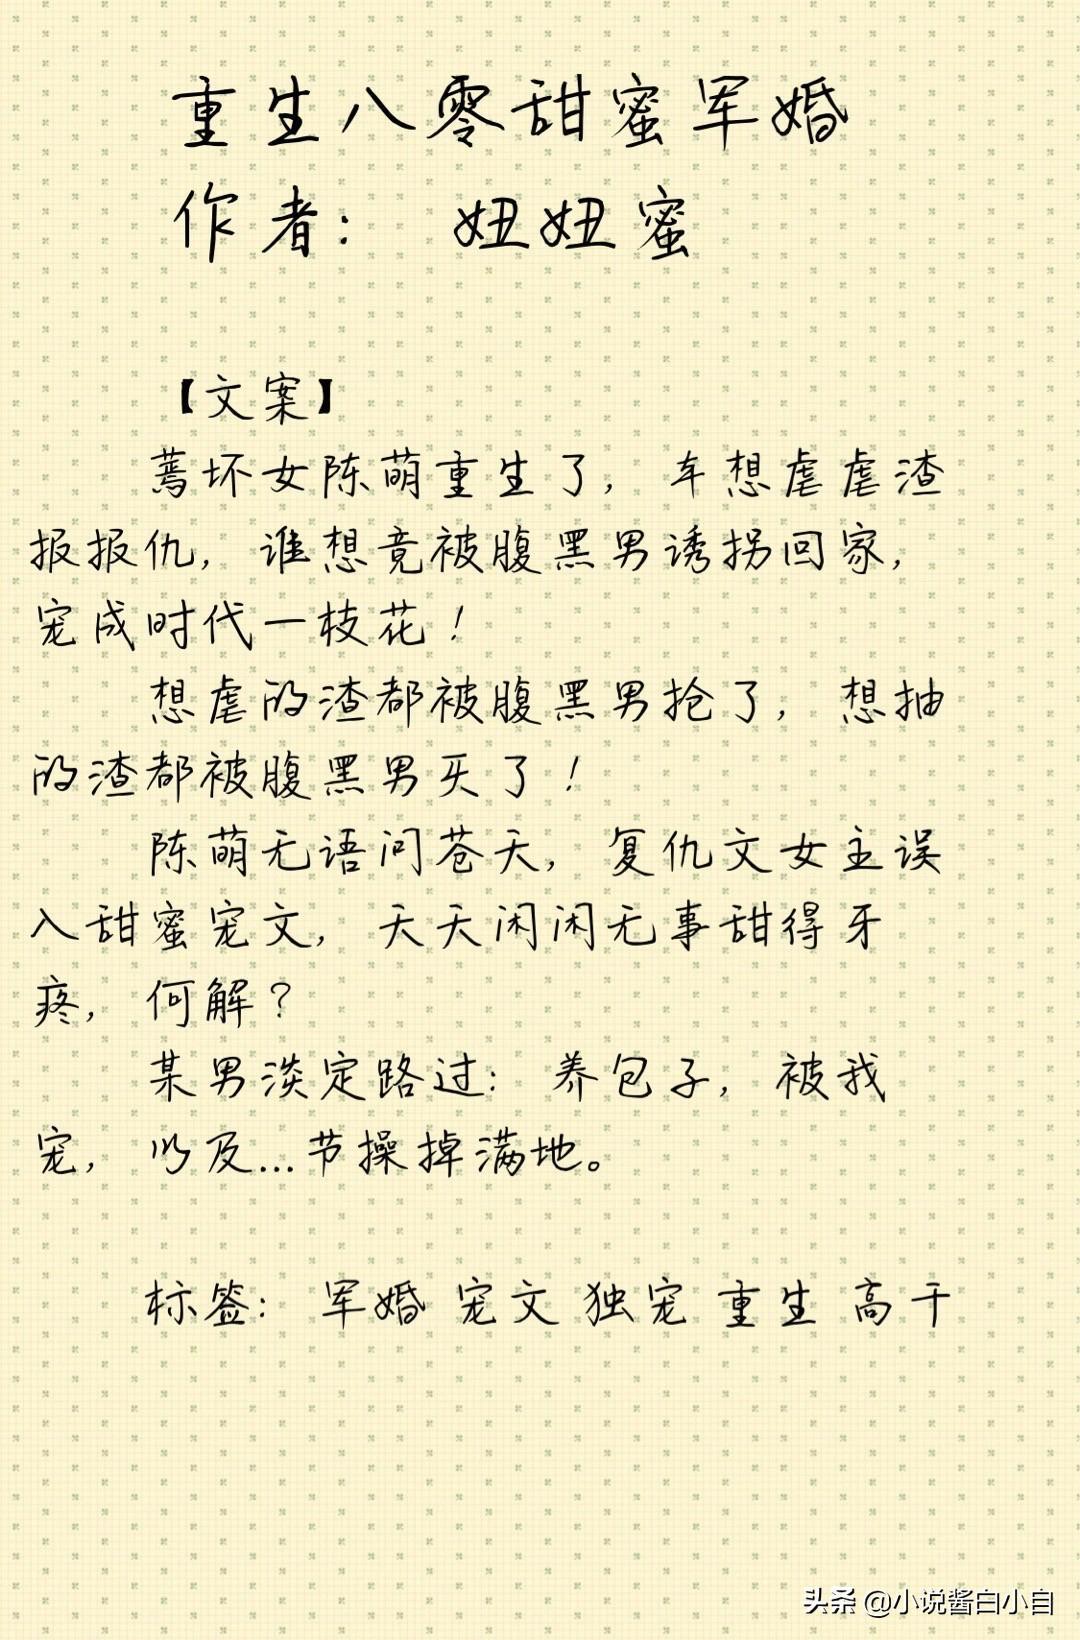 重生八零甜蜜军婚
作者： 妞妞蜜
【文案】
蔫坏女陈萌重生了，本想虐虐渣
报报仇，谁想竟被腹黑男诱拐回家，
宠成时代一枝花！
想虐的渣都被腹黑男抢了，想抽
的渣都被腹黑男灭了！
陈萌无语问苍天，复仇文女主误
入甜蜜宠文，天天闲闲无事甜得牙
疼，何解？
某男淡定路过：养包子，被我
宠，以及...节操掉满地。
标签：军婚 宠文 独宠 重生 高干
头条 @小说酱白小白